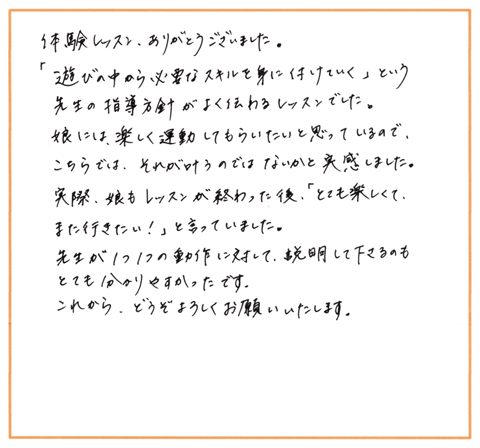 体験レッスン、ありがとうございました。
「遊びの中から必要なスキルを身に付けていく」という
先生の指導方針がよく伝わるレッスンでした。
娘には、楽しく運動してもらいたいと思っているので、
こちらでは、それが叶うのではないかと実感しました。
実際、娘もレッスンが終わった後、「とても楽しくて、
また行きたい!」と言っていました。
先生が1つ1つの動作に対して、説明して下さるのも
とても分かりやすかったです。
これから、どうぞよろしくお願いいたします。